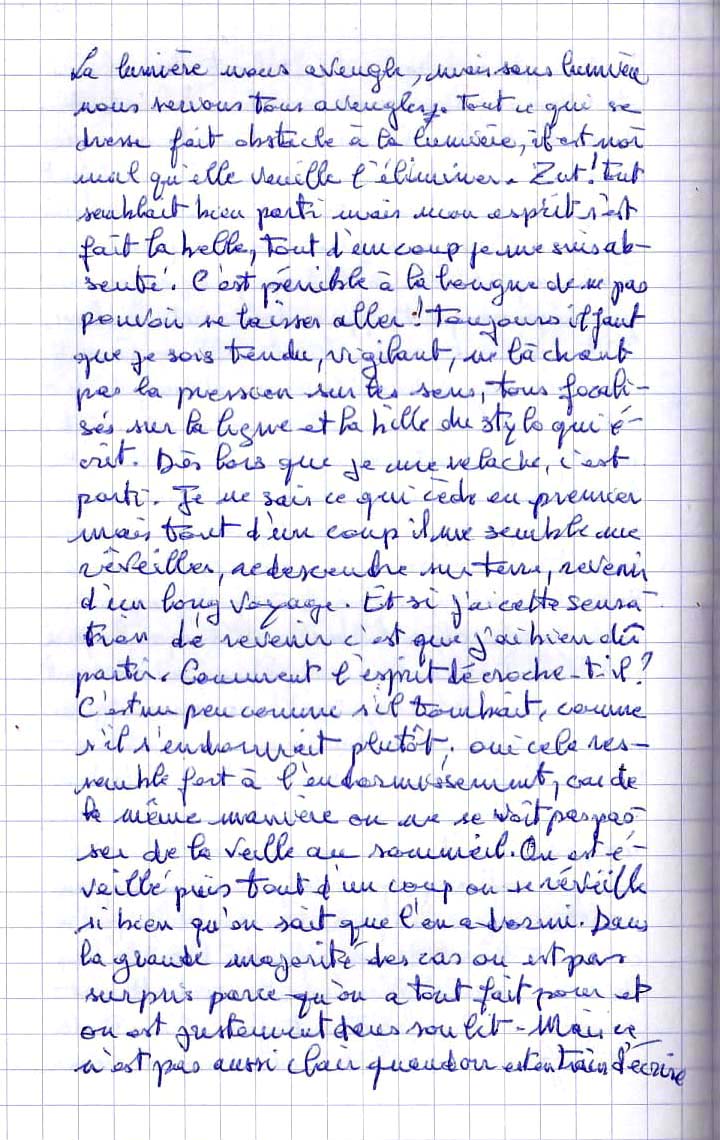 La lumière nous aveugle, mais sans lumière
nous serions tous aveugles. Tout ce qui se
dresse fait obstacle à la lumière, il est nor
mal qu'elle veuille l'éliminer. Zut! Tout
semblait bien parti mais mon esprit s'est
fait la belle, tout d'un coup je me suis ab-
senté. C'est pénible à la longue de ne pas
pouvoir se laisser aller! Toujours il faut
que je sois tendu, vigilant, ne lâchant
pas la pression sur les sens, tous focali-
sés sur la ligne et la bille du stylo qui é-
crit. Dès lors que je me relache, c'est
parti. Je ne sais ce qui cède en premier
mais tout d'un coup il me semble me
réveiller, redescendre sur terre, revenir
d'un long voyage. Et si j'ai cette sensa-
tion de revenir c'est que j'ai bien dû
partir. Comment l'esprit décroche-t-il?
C'est un peu comme s'il tombait, comme
s'il s'endormait plutôt, oui cela res-
semble fort à l'endormissement, car de
la même manière on ne se voit pas pas-
ser de la veille au sommeil. On est é-
veillé puis tout d'un coup on se réveille
si bien qu'on sait que l'on a dormi. Dans
la grande majorité des cas on est pas
surpris parce qu'on a tout fait pour et
on est justement dans son lit - Mais ce
n'est pas aussi clair quand on est en train d'écrire